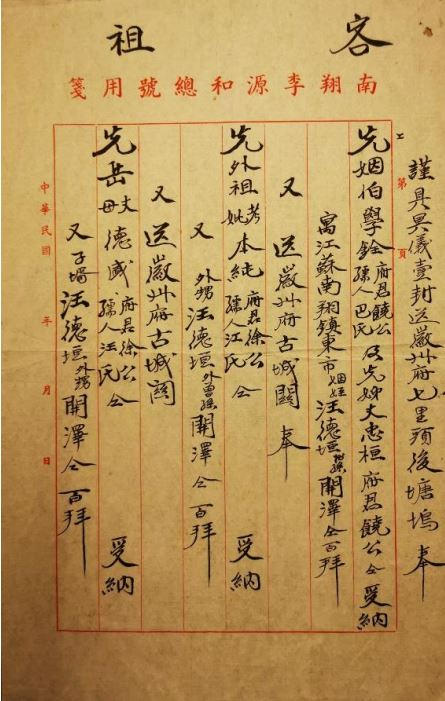 客祖
南翔李源和總號用箋
第 頁
謹具冥儀壹封送嚴州府七里頭後塘塢 奉
先姻伯學銓府君饒公孺人巴氏及先姊丈忠桓府君饒公仝 受納
寓江蘇南翔鎮東市姻姪汪德垣開澤仝百拜
又 送嚴州府古城關 奉
先外祖考妣本純府君徐公孺人江氏仝 受納
又 外甥汪德垣外曾孫開澤仝百拜
又 送嚴州府古城關
先岳丈母德咸府君徐公孺人汪氏仝 受納
又 子壻汪德垣外甥開澤仝百拜
中華民國 年 月 日